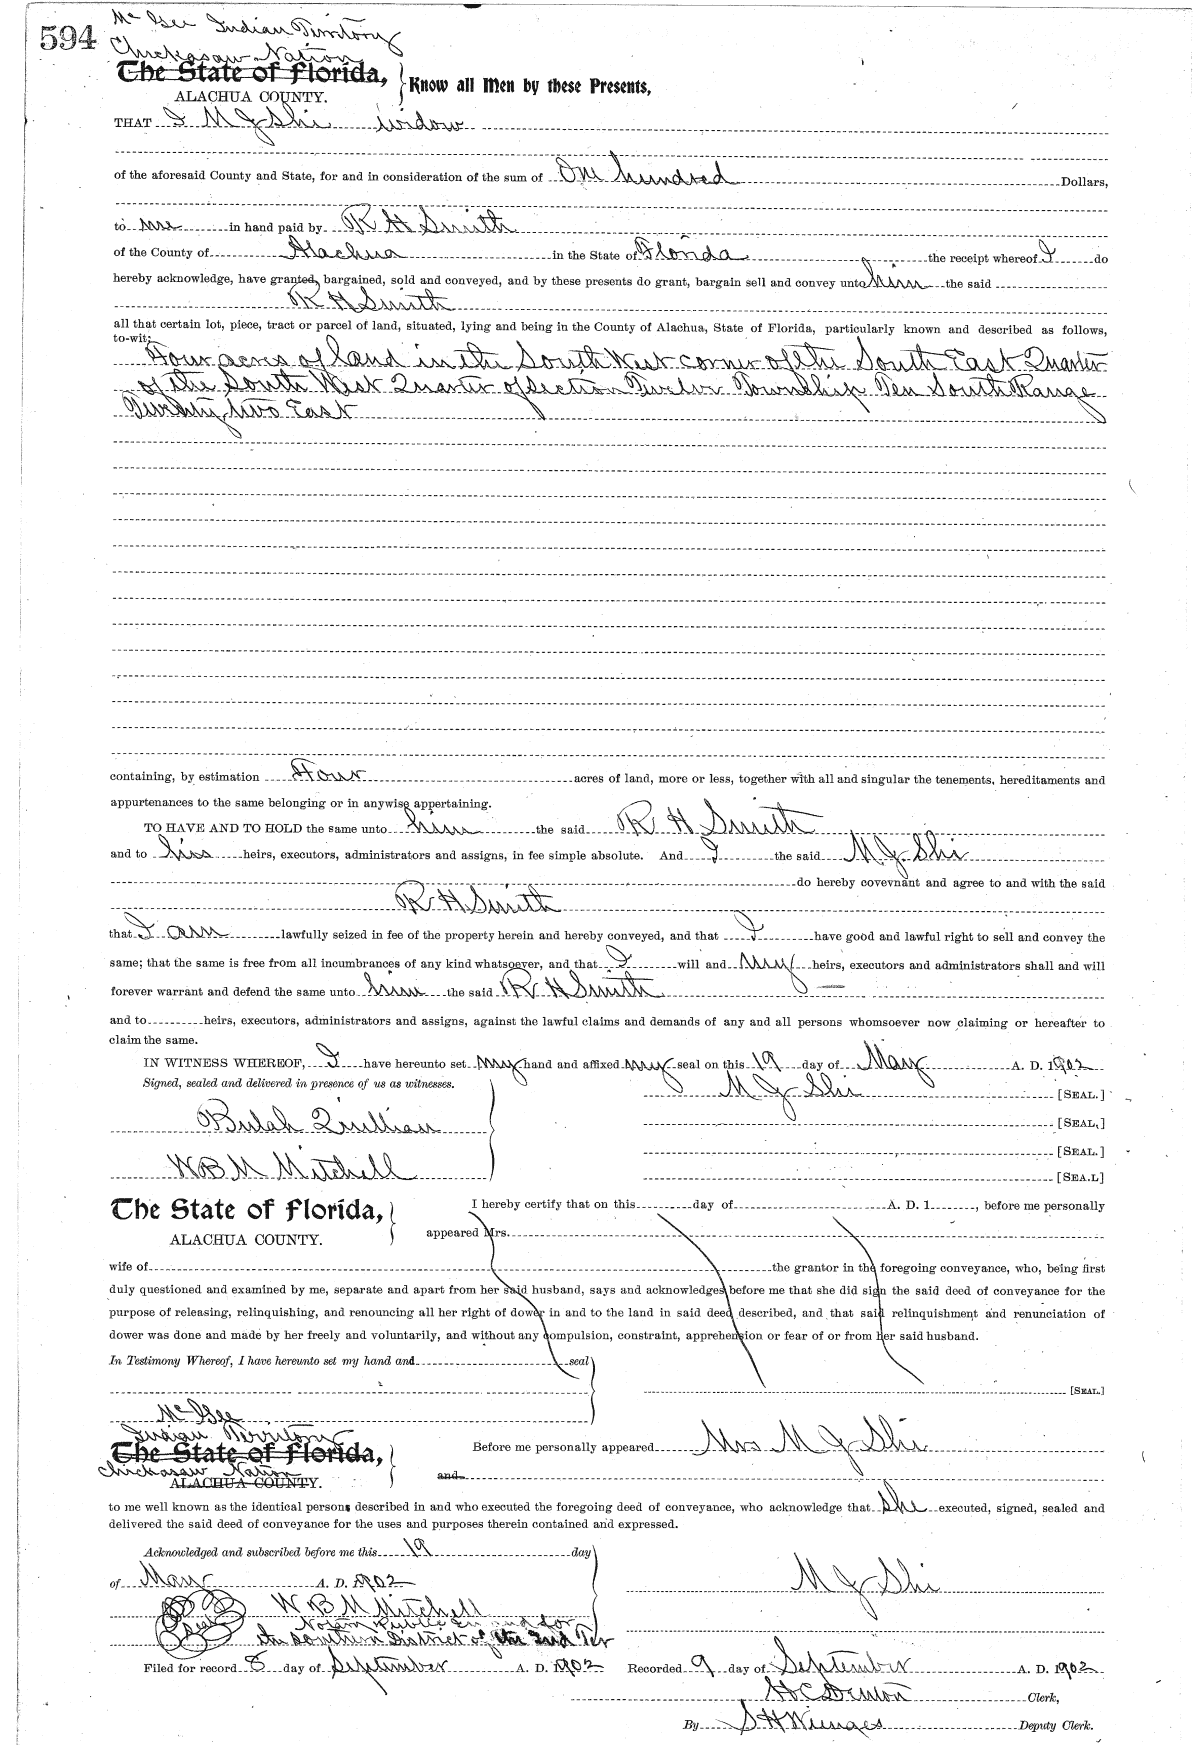 594
Mc Gee Indian Territory
Chickasaw Nation
The State of Florida,
ALACHUA COUNTY.
Know all Men by these Presents,
THAT I M J Shi widow
of the aforesaid County and State, for and in consideration of the sum of One hundred Dollars,
to me in hand paid by R H Smith
of the County of Alachua in the State of Florida the receipt whereof I do
hereby acknowledge, have granted, bargained, sold and conveyed, and by these presents do grant, bargain sell and convey unto him the said
R H Smith
all that certain lot, piece, tract or parcel of land, situated, lying and being in the County of Alachua, State of Florida, particularly known and described as follows,
to-wit:
Four acres of land in the South West corner of the South East Quarter
of the South West Quarter of Section Twelve Township Ten South Range
Twenty two East
containing, by estimation Four acres of land, more or less, together with all and singular the tenements, hereditaments and
appurtenances to the same belonging or in anywise appertaining.
TO HAVE AND TO HOLD the same unto him the said R H Smith
and to his heirs, executors, administrators and assigns, in fee simple absolute. And I the said M J Shi
do hereby covevnant and agree to and with the said
R H Smith
that I am lawfully seized in fee of the property herein and hereby conveyed, and that I have good and lawful right to sell and convey the
same; that the same is free from all incumbrances of any kind whatsoever, and that I will and my heirs, executors and administrators shall and will
forever warrant and defend the same unto him the said R H Smith
and to heirs, executors, administrators and assigns, against the lawful claims and demands of any and all persons whomsoever now claiming or hereafter to
claim the same.
IN WITNESS WHEREOF, I have hereunto set my hand and affixed my seal on this 19 day of May A. D. 1902
Signed, sealed and delivered in presence of us as witnesses.
M J Shi [SEAL.]
Bulah Quillian [SEAL,]
[SEAL.]
W B M Mitchell [SEA.L]
The State of Florida,
ALACHUA COUNTY.
I hereby certify that on this day of A. D. 1 , before me personally
appeared Mrs.
wife of the grantor in the foregoing conveyance, who, being first
duly questioned and examined by me, separate and apart from her said husband, says and acknowledges before me that she did sign the said deed of conveyance for the
purpose of releasing, relinquishing, and renouncing all her right of dower in and to the land in said deed described, and that said relinquishment and renunciation of
dower was done and made by her freely and voluntarily, and without any compulsion, constraint, apprehension or fear of or from her said husband.
In Testimony Whereof, I have hereunto set my hand and seal
[SEAL.]
Mc Gee
Indian Territory
The State of Florida,
Chickasaw Nation
ALACHUA COUNTY.
Before me personally appeared Mrs M J Shi
and
to me well known as the identical persons described in and who executed the foregoing deed of conveyance, who acknowledge that she executed, signed, sealed and
delivered the said deed of conveyance for the uses and purposes therein contained and expressed.
Acknowledged and subscribed before me this 19 day
of May A. D. 1902
M J Shi
W B M Mitchell
Seal
Notary Public In and for
the Southern District of the Ind Ter
Filed for record 8 day of September A. D. 1902 Recorded 9 day of September A. D. 1902
H C Denton Clerk,
By S H Wienges Deputy Clerk.